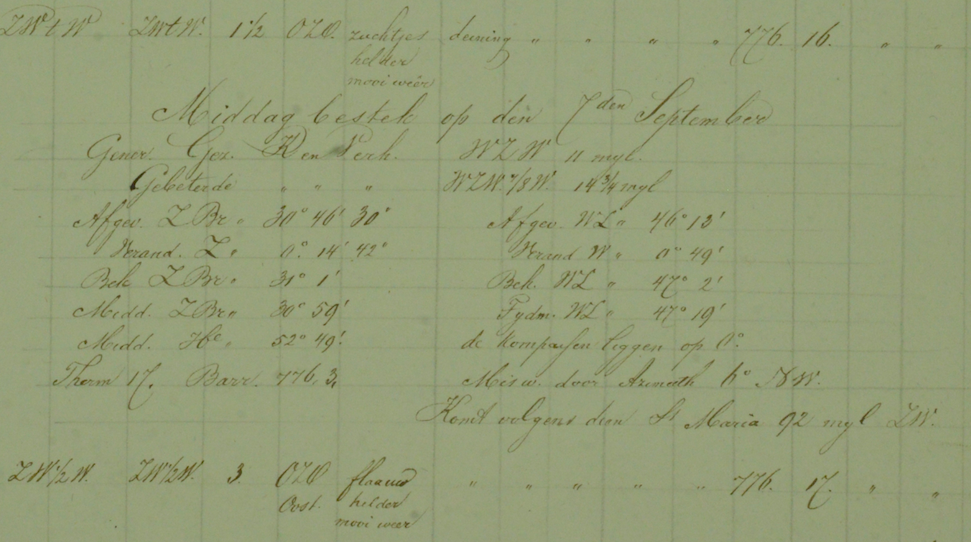 ZWtW ZWtW. 1 1/2 OZO. zuchtjes deining " " " " 776. 16. " "
helder
mooi weêr
Middag bestek op den 7den September
Gener. Gez. K en Verh. WZW 11 myl.
Gebeterde " " " WZW 7/8 W. 14 3/4 myl
Afgev. Z Br " 30° 46' 30" Afgev. WL " 46° 13'
Verand. Z " 0° 14' 42" Verand W " 0° 49'
Bek Z Br " 31° 1' Bek. WL " 47° 2'
Midd. Z Br " 30° 59' Tydm. WL " 47° 19'
Midd. He " 52° 49'. de Kompassen liggen op 0°.
Therm 17. Barr. 776,3, Misw. door Azimuth 6° NW.
Komt volgens dien St Maria 92 myl ZW.
ZW 1/2 W. ZW 1/2 W. 3. OZO flaauw " " " " " 776. 17. " "
Oost. helder
mooi weer